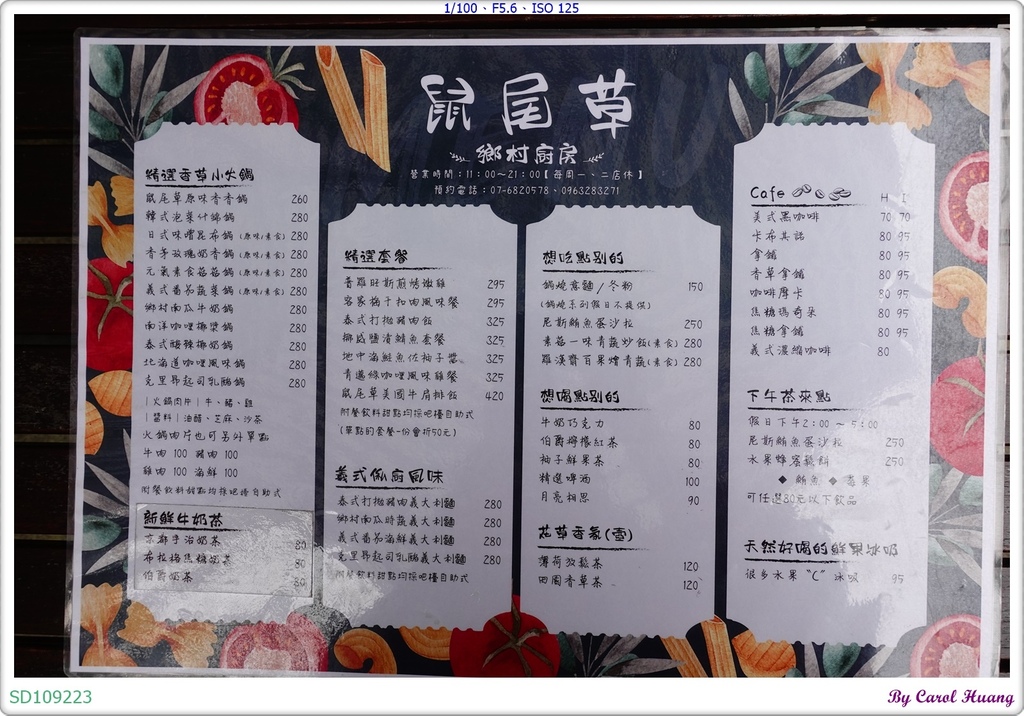 1/100、F5.6、ISO 125
鼠尾草
鄉村廚房
營業時間：11：00~21：00【每周一、二店休】
預約電話：07-6820578、0963283271
精選香草小火鍋
鼠尾草原味香香鍋 260
韓式泡菜什錦鍋 280
日式味噌昆布鍋（原味/素食） 280
香茅玫瑰奶香鍋（原味/素食） 280
元氣素食菇菇鍋（原味/素食） 280
義式番茄蔬菜鍋（原味/素食） 280
鄉村南瓜牛奶鍋 280
南洋咖哩椰漿鍋 280
泰式酸辣椰奶鍋 280
北海道咖哩風味鍋 280
克里昂起司乳酪鍋 280
|火鍋肉片|牛、豬、雞
|醬料|油醋、芝麻、沙茶
火鍋肉片也可另外單點
牛肉 100 豬肉 100
雞肉 100 海鮮 100
附餐飲料甜點均採吧檯自助式
新鮮牛奶茶
京都宇治奶茶 80
布拉格焦糖奶茶 80
伯爵奶茶 80
精選套餐
普羅旺斯煎烤嫩雞 295
客家梅干扣肉風味餐 295
泰式打拋豬肉飯 325
挪威鹽漬鯖魚套餐 325
地中海鮭魚佐柚子醬 325
青邁綠咖哩風味雞餐 325
鼠尾草美國牛肩排飯 420
附餐飲料甜點均採吧檯自助式
（單點的套餐一份會折50元）
義式私廚風味
泰式打拋豬肉義大利麵 280
鄉村南瓜時蔬義大利麵 280
義式番茄海鮮義大利麵 280
克里昂起司乳酪義大利麵 280
附餐飲料甜點均採吧檯自助式
想吃點別的
鍋燒意麵/冬粉 150
（鍋燒系列假日不提供）
尼斯鮪魚蛋沙拉 250
素菇一味青蔬炒飯（素食） 280
羅漢齋百果燴青蔬（素食） 280
想喝點別的
牛奶巧克力 80
伯爵檸檬紅茶 80
柚子鮮果茶 80
精選啤酒 100
月亮相思 90
花草香氛（壺）
薄荷放鬆茶 120
田園香草茶 120
Cafe H I
美式黑咖啡 70 70
卡布其諾 80 95
拿鐵 80 95
香草拿鐵 80 95
咖啡摩卡 80 95
焦糖瑪奇朵 80 95
焦糖拿鐵 80 95
義式濃縮咖啡 80
下午茶來點
假日下午2：00 ~ 5：00
尼斯鮪魚蛋沙拉 250
水果蜂蜜鬆餅 250
◆ 鮪魚 ◆ 莓果
可任選80元以下飲品
天然好喝的鮮果冰吧
很多水果"C"冰吸 95
SD109223
By Carol Huang